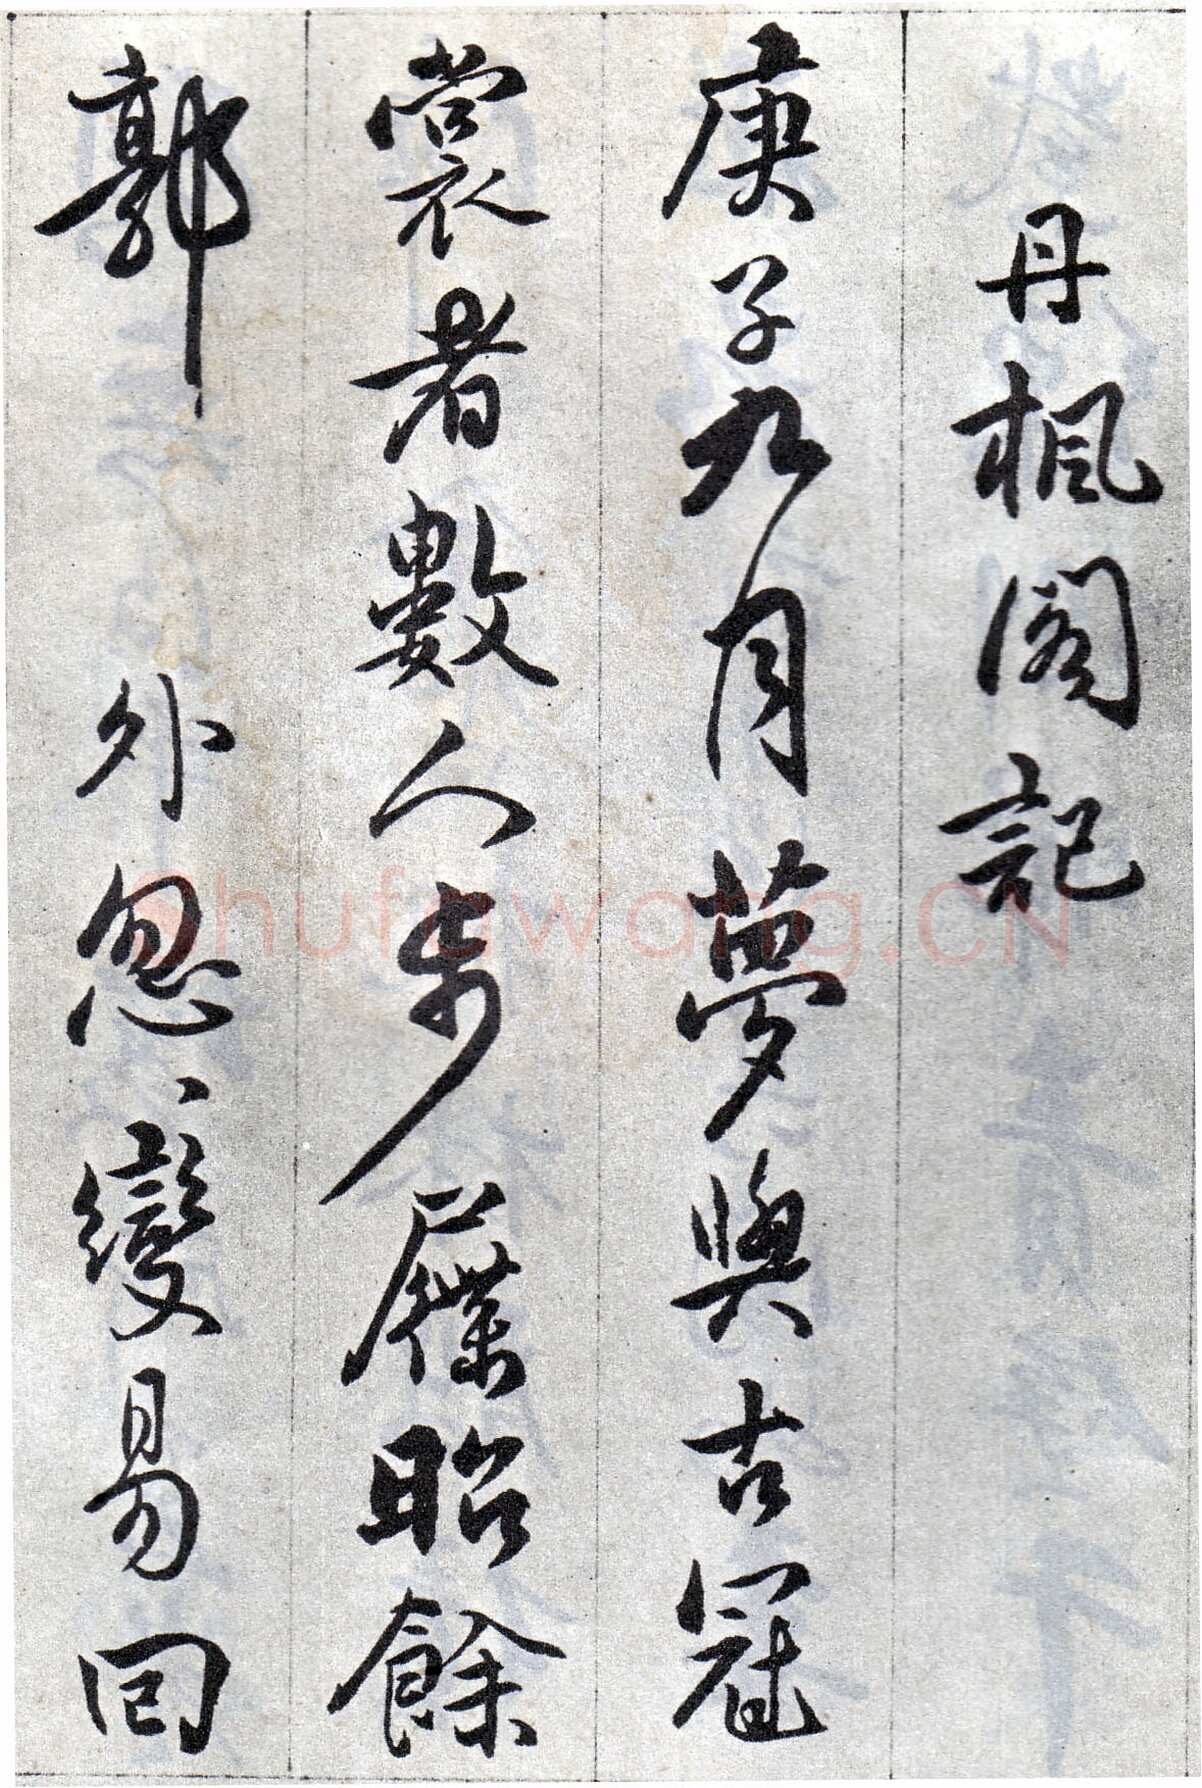 丹楓閣記
庚子九月夢與古冠
裳者數人步屧昭餘
郭外忽、變易回
shufawang.CN